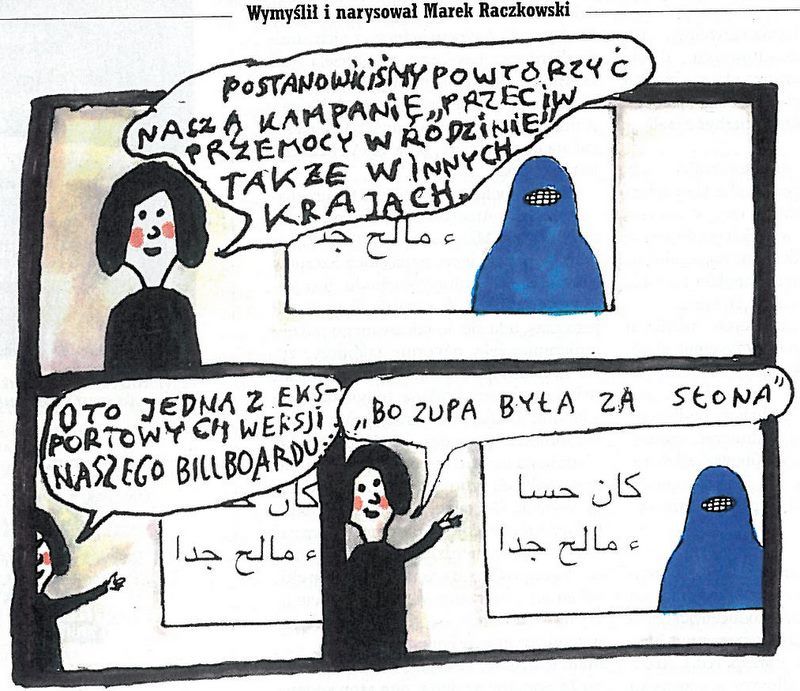 Wymyślił i narysował Marek Raczkowski
POSTANOWILIŚMY POWTÓRZYĆ
NASZĄ KAMPANIĘ „PRZECIW
PRZEMOCY W RODZINIE”
TAKŻE W INNYCH
KRAJACH.
ء مالح جد
OTO JEDNA Z EKS-
PORTOWYCH WERSJI
NASZEGO BILLBOARDU...
كان حس
ء مالح جدا
„BO ZUPA BYŁA ZA SŁONA”
كان حسا
ء مالح جدا